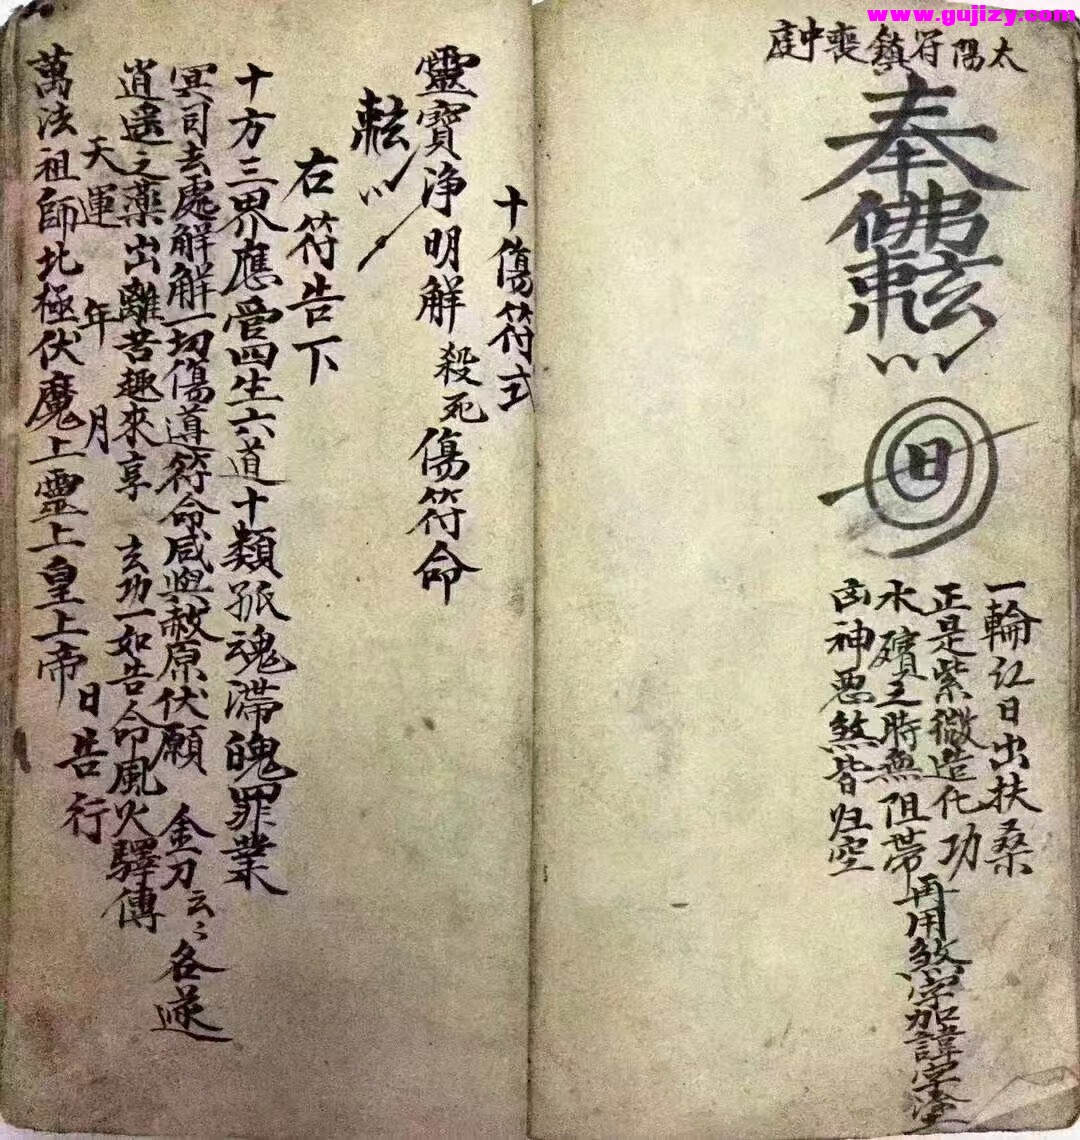 www.gujizy.com
太陽符鎮喪中庭
奉
佛
日
一輪红日出扶桑
正是紫微造化功
水殯之時無阻帯再用煞字加諱字塗
凶神惡煞皆归空
十傷符式
靈寶净明解殺死傷符命
右符告下
十方三界應受四生六道十類孤魂滞魄罪業
冥司去處解解一切傷導符命咸與赦原伏願 金刀云〻各遂
逍遥之藥出離苦趣來享 玄功一如告命風火驛傳
天運 年 月 日告行
萬法祖師北極伏魔上靈上皇上帝